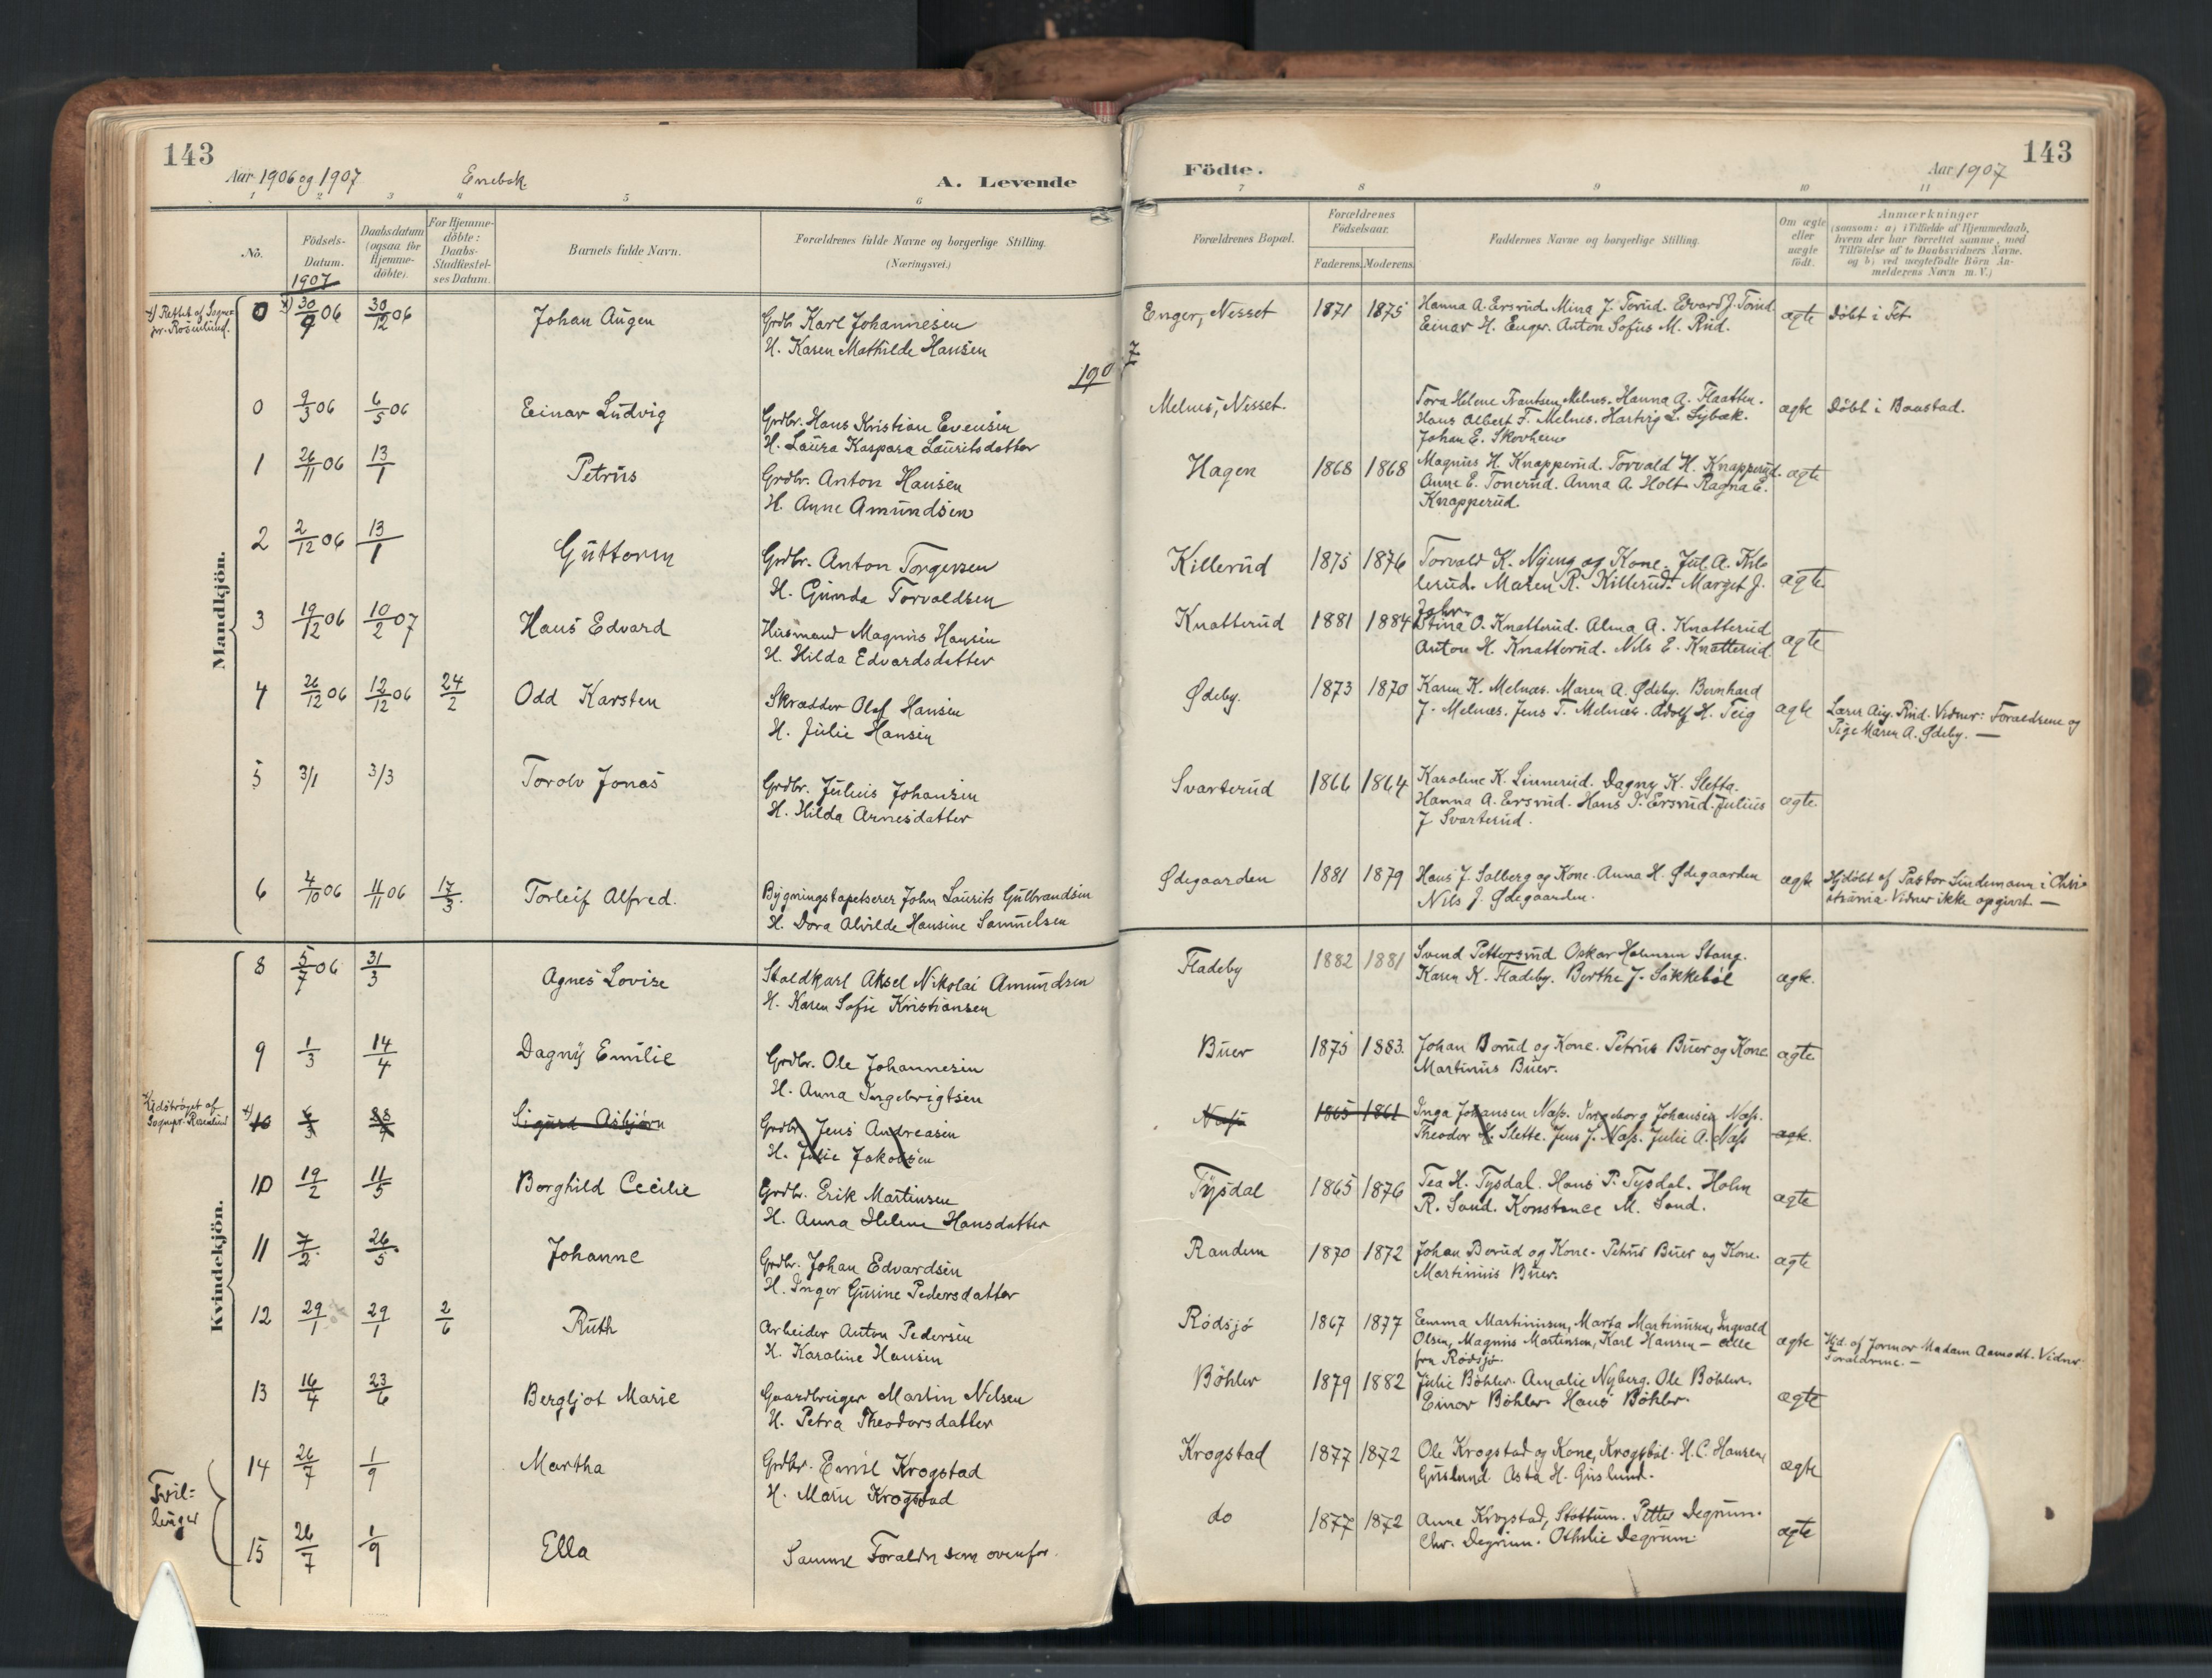 143
Aar 1906 og 1907
Enebak
A. Levende
1 2 3 4 5 6
No.
Födsels-
Datum.
1907
Daabsdatum
(ogsaa for
Hjemme-
döbte).
For Hjemme-
döbte:
Daabs-
Stadfæstel-
ses Datum.
Barnets fulde Navn.
Forældrenes fulde Navne og borgerlige Stilling.
(Næringsvei.)
Födte.
143
Aar 1907
7 8 9 10 11
Forældrenes Bopæl.
Forældrenes
Födselsaar.
Faderens. Moderens.
Faddernes Navne og borgerlige Stilling.
Om ægte
eller
uægte
födt.
Anmærkninger
(saasom: a) i Tilfælde af Hjemmedaab,
hvem der har forrettet samme, med
Tilföielse af to Daabsvidners Navne,
og b) ved uægtefödte Börn An-
melderens Navn m. V.)
Mandkjön.
x) Rettet af Sogne-
pr. Rosenlund.
0 x) 30/9 06 30/12 06 Johan Augen
Grdbr. Karl Johannesen
H. Karen Mathilde Hansen
Enger, Nesset 1871 1875
Hanna A. Ersrud. Mina J. Torud. Edvard J. Torud
Einar H. Enger. Anton Sofus M. Rud.
ægte Døbt i Fet
1907
0 9/3 06 6/5 06 Einar Ludvig
Grdbr. Hans Kristian Evensen
H. Laura Kaspara Lauritsdatter
Melnes, Nesset.
Tora Helene Frantsen, Melnes. Hanna A. Flaatten.
Hans Albert F. Melnes. Hartvig L. Sybak.
Johan E. Skovheim
ægte Døbt i Baastad.
1 26/11 06 13/1 Petrus
Grdbr. Anton Hansen
H. Anne Amundsen
Hagen 1868 1868
Magnus H. Knapperud. Torvald H. Knapperud.
Anne E. Tonerud. Anna A. Holt. Ragna E.
Knapperud.
ægte
2 2/12 06 13/1 Guttorm
Grdbr. Anton Torgersen
H. Gunda Torvaldsen
Killerud 1875 1876
Torvald K. Nyeng og Kone. Jul. A. Kil-
lerud. Maren R. Killerud. Marget J.
ægte
3 19/12 06 10/2 07 Hans Edvard
Husmand Magnus Hansen
H. Hilda Edvardsdatter
Knatterud 1881 1884
Stina O. Knatterud. Alma A. Knatterud
Anton H. Knatterud. Nils E. Knatterud.
ægte
4 26/12 06 12/12 06 24/2 Odd Karsten
Skrædder Olaf Hansen
H. Julie Hansen
Ødeby. 1873 1870
Karen K. Melnæs. Maren A. Ødeby. Bernhard
J. Melnæs. Jens T. Melnæs. Adolf H. Teig
ægte
Lærer Aug. Rud. Vidner: Forældrene og
Pige Maren A. Ødeby. —
5 3/1 3/3 Torolv Jonas
Grdbr. Julius Johansen
H. Hilda Arnesdatter
Svarterud 1866 1864
Karoline K. Linnerud. Dagny K. Sletta.
Hanna A. Ersrud. Hans I. Ersrud. Julius
J Svarterud.
ægte.
6 4/10 06 11/11 06 17/3. Torleif Alfred.
Bygningstapetserer John Laurits Gulbrandsen
H. Dora Alvilde Hansine Samuelsen
Ødegaarden 1881 1879
Hans J. Solberg og Kone. Anna H. Ødegaarden
Nils J. Ødegaarden.
ægte
Hjdøbt af Pastor Lindemann i Chri-
stiania. Vidner ikke opgivet —
Kvindekjön.
8 5/7 06 31/3 Agnes Lovise
Staldkarl Aksel Nikolai Amundsen
H. Karen Sofie Kristiansen
Fladeby 1882 1881
Svend Pettersrud Oskar Halmrsen Stang.
Karen K. Fladeby. Berthe J. Sikkebøl
ægte.
9 1/3 14/4 Dagny Emilie
Grdbr. Ole Johannesen
H. Anna Ingebrigtsen
Buer 1875 1883.
Johan Borud og Kone. Petrus Buer og Kone
Martinus Buer.
ægte
x) Udstrøget af
Sognepr. Rosenlund
x) 10 Sigurd Asbjørn
Grdbr. Jens Andreasen
H. Julie Jakobsen
Næss 1865 1861
Inga Johansen Næss. Ingeborg Johansen Næss.
Theodor H. Slette. Jens J. Næss. Julie A. Næss
ægte.
10 19/2 11/5 Borghild Cecilie
Grdbr. Erik Martinsen
H. Anna Helene Hansdatter
Tysdal 1865 1876
Tea H. Tysdal. Hans P. Tysdal. Holm
R. Sand. Konstance M. Sand.
ægte
11 7/2. 26/5. Johanne
Grdbr. Johan Edvardsen
H. Inger Gurine Pedersdatter
Randem 1870 1872
Johan Borud og Kone. Petrus Buer og Kone.
Martinus Buer.
ægte
12 29/1 29/1 2/6 Ruth
Arbeider Anton Pedersen
H. Karoline Hansen
Rødsjø 1867 1877
Emma Martinusen, Marta Martinusen, Ingvald
Olsen, Magnus Martinsen, Karl Hansen – alle
fra Rødsjø.
ægte
Hjd. af Jormor Madam Aamodt. Vidner
Forældrene. —
13 16/4 23/6 Bergljot Marie
Gaardbruger Martin Nilsen
H. Petra Theodorsdatter
Bøhler 1879 1882
Julie Bøhler. Amalie Nyberg. Ole Bøhler.
Einar Bøhler. Hans Bøhler.
ægte
Tvil-
linger
14 26/7 1/9 Martha
Grdbr. Emil Krogstad
H. Marie Krogstad
Krogstad 1877 1872
Ole Krogstad og Kone, Krogsbøl. H.C. Hansen,
Guslund. Asta H. Guslund.
ægte
15 26/7 1/9 Ella
Samme Forældr som ovenfor.
do 1877 1872
Anne Krogstad, Stottum. Petter Degrum.
Chr. Degrum. Othilie Degrum.
ægte